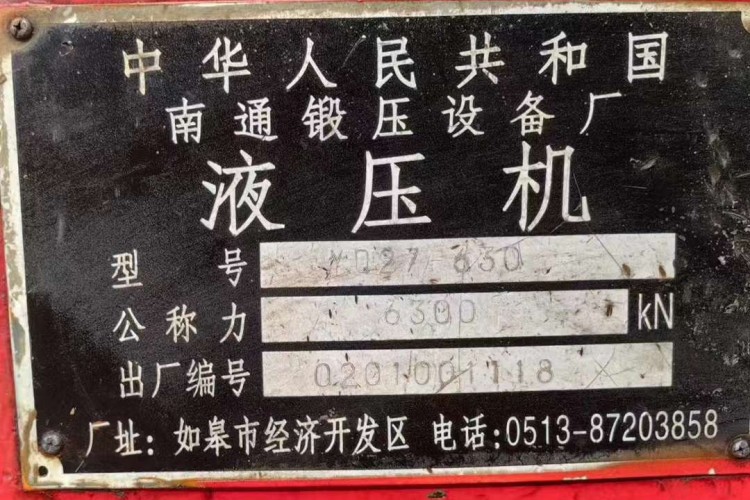 中华人民共和国
南通锻压设备厂
液压机
型号 YD27-630
公称力 6300 kN
出厂编号 0201001118
厂址：如皋市经济开发区 电话：0513-87203858